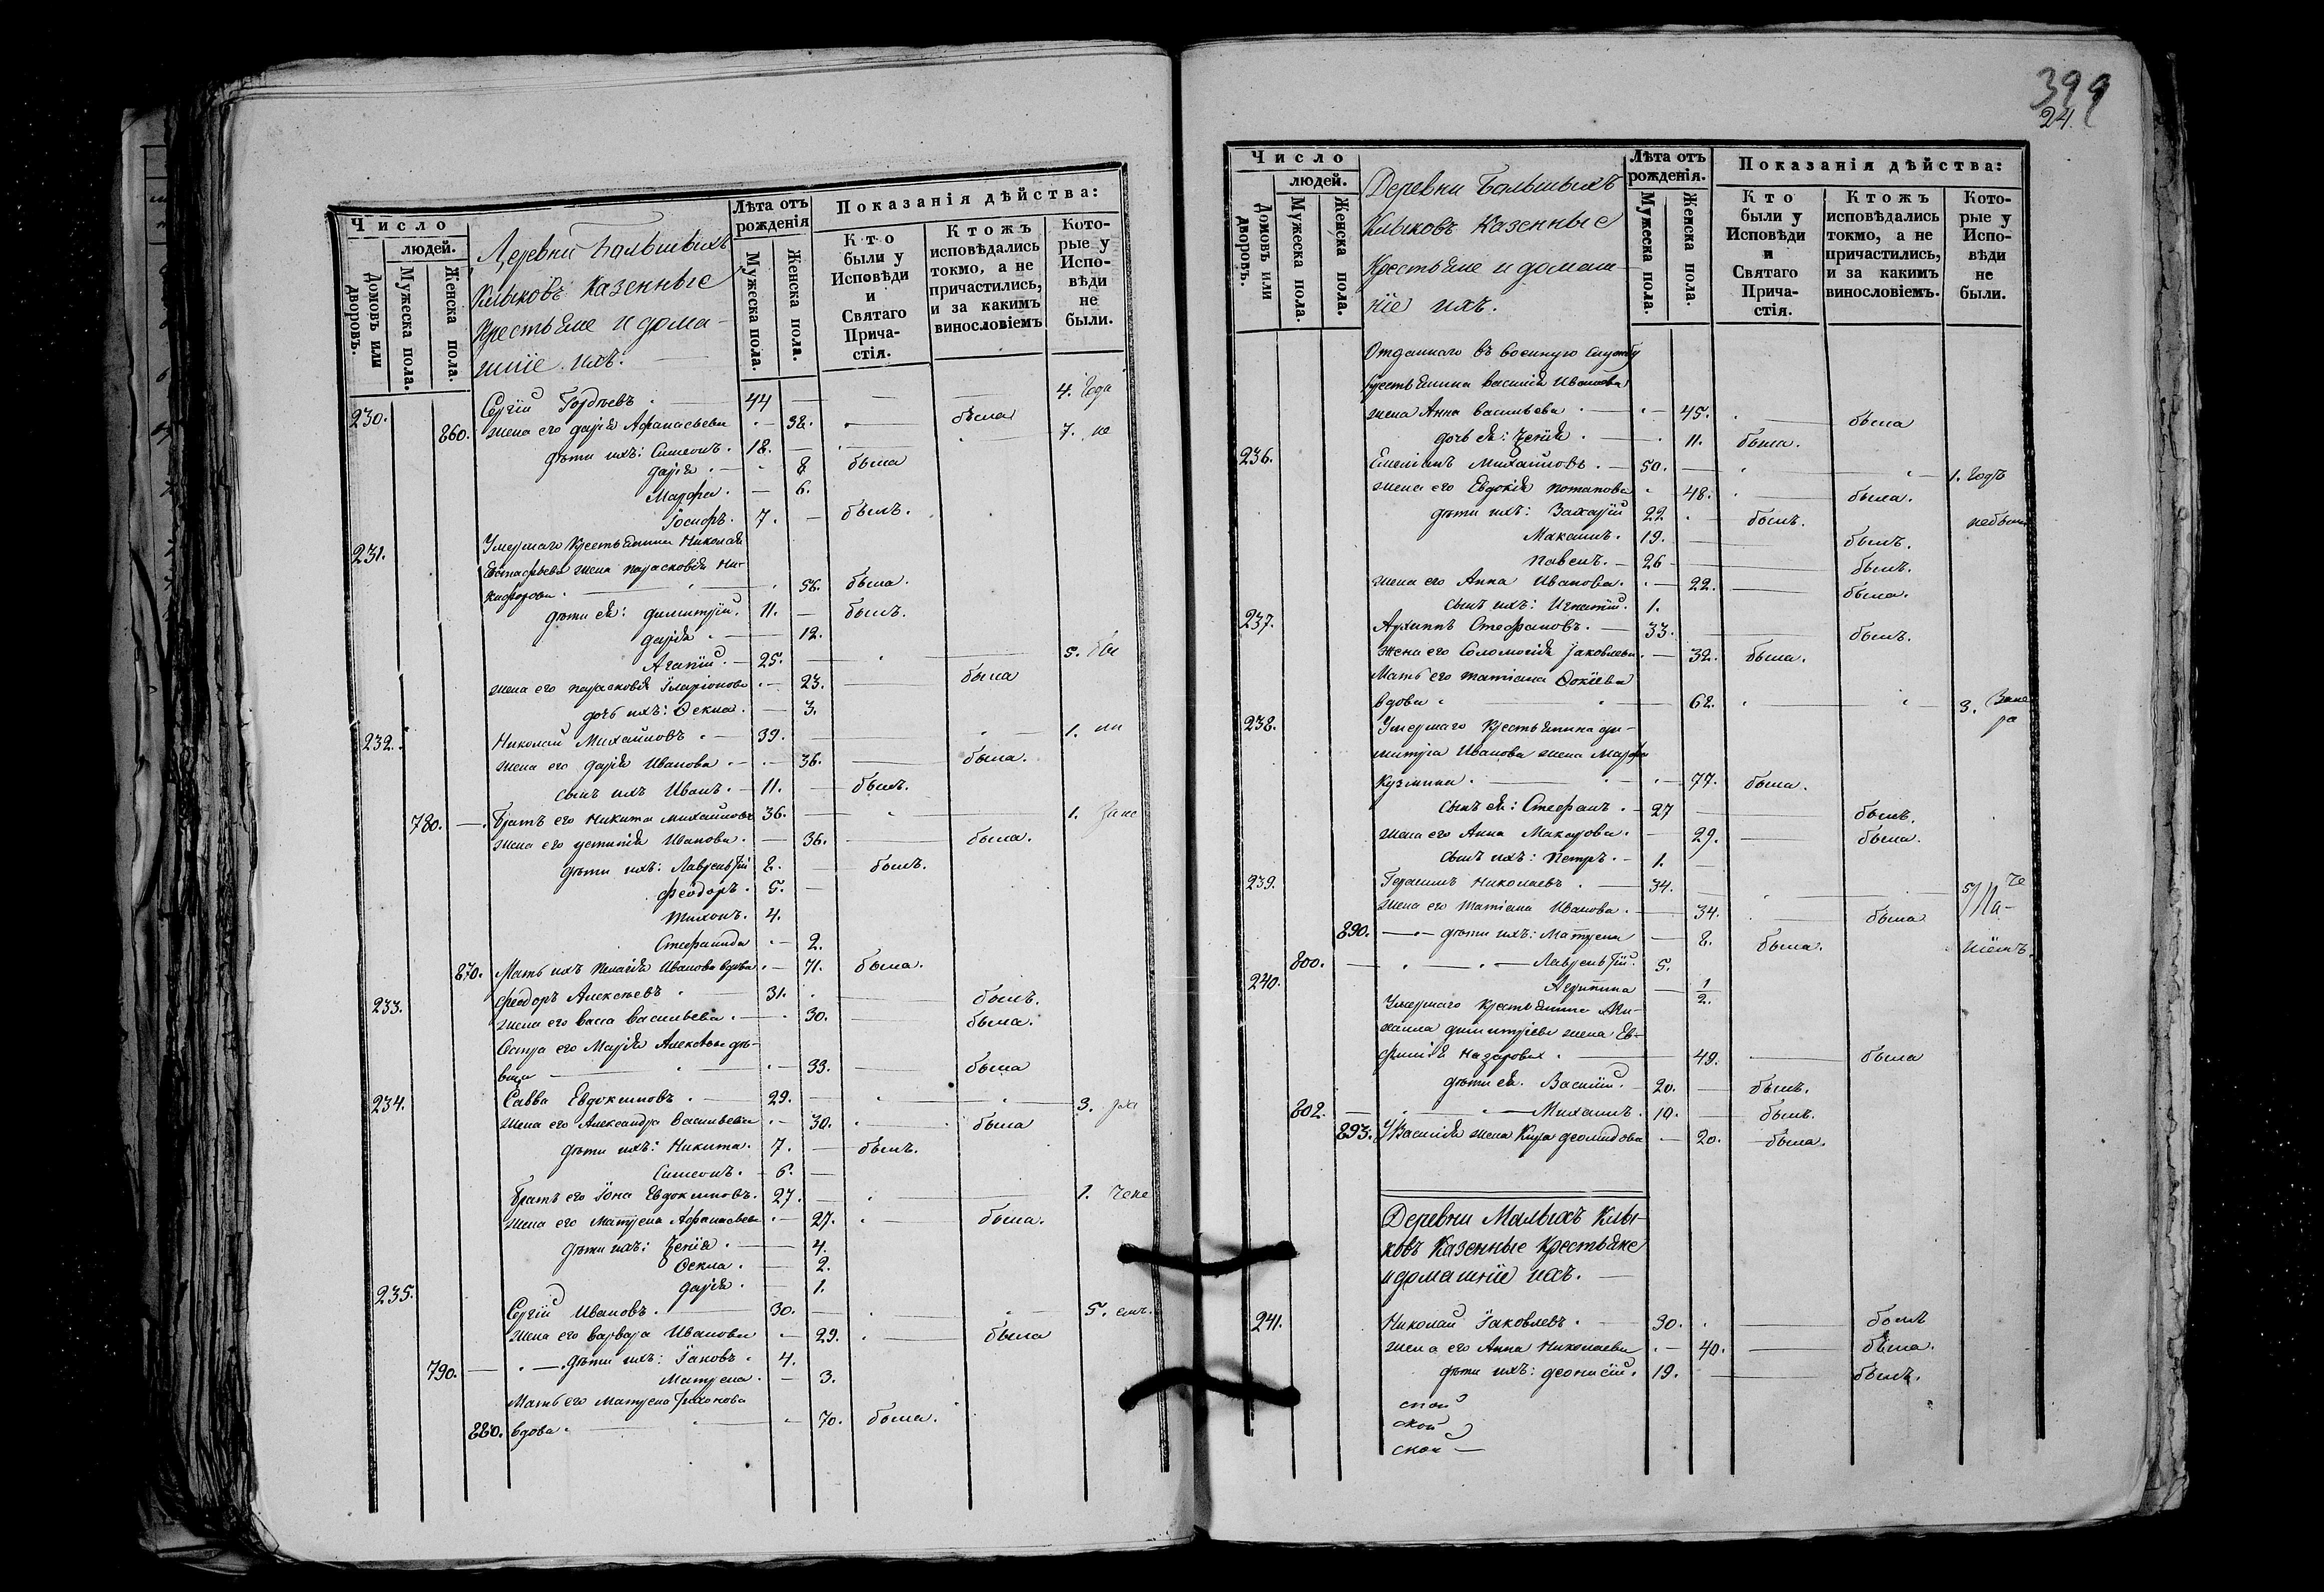 Число
людей.
Домовъ или дворовъ.
Мужеска пола.
Женска пола.
Деревни Большихъ
Клыковъ Казенные
Крестьяне и дома-
шніе ихъ.
Лѣта отъ рожденія
Мужеска пола.
Женска пола.
Показанія дѣйства:
Кто были у Исповѣди и Святаго Прича- стія.
Ктожъ исповѣдались токмо, а не причастились, и за какимъ винословіемъ
Кото- рые у Испо- вѣди не были.
230. Сергій Гордѣевъ 44 4. года
860. жена его Дарія Афанасьева 38. была
дѣти ихъ: Симеонъ. 18. 7. не
Дарія 8 была
Марфа. 6.
Іосифъ. 7. былъ.
231. Умершаго Крестьянина Николая
Евстафьева жена Парасковія Ни-
кифорова 56. была.
дѣти ея: Димитрій. 11. былъ.
Дарія 12.
Агапій. 25. 5.
жена его Парасковія Иларіонова 23. была
дочь ихъ: Ѳекла. 3.
232. Николай Михайловъ 39. 1.
жена его Дарія Иванова 36. была.
сынъ ихъ Иванъ. 11. былъ.
780. Братъ его Никита Михайловъ 36. 1.
жена его Устинія Иванова. 36. была.
дѣти ихъ: Лаврентій 8. былъ.
Феодоръ. 5.
Тихонъ. 4.
Стефанида 2.
870. Мать ихъ Пелагія Иванова вдова 71. была.
233. Феодоръ Алексѣевъ 31. былъ.
жена его Васса Васильева. 30. была.
Сестра его Марія Алексѣева дѣ-
вица 33. была
234. Савва Евдокимовъ 29. 3.
жена его Александра Васильева 30. была
дѣти ихъ: Никита. 7. былъ.
Симеонъ. 6.
Братъ его Іона Евдокимовъ. 27. 1.
жена его Матрена Афанасьева 27. была.
дѣти ихъ: Ксенія. 4.
Ѳекла. 2.
Дарія. 1.
235. Сергій Ивановъ. 30. 5.
жена его Варвара Иванова 29. была
790. дѣти ихъ: Іаковъ. 4.
Матрена. 3.
Мать его Матрена Тихонова
880. вдова. 70. была.
399
24.
Число
людей.
Домовъ или дворовъ.
Мужеска пола.
Женска пола.
Деревни Большихъ
Клыковъ Казенные
Крестьяне и домаш-
ніе ихъ.
Лѣта отъ рожденія.
Мужеска пола.
Женска пола.
Показанія дѣйства:
Кто были у Исповѣди и Святаго Прича- стія.
Ктожъ исповѣдались токмо, а не причастились, и за какимъ винословіемъ.
Кото- рые у Испо- вѣди не были.
Отданнаго въ военную службу
крестьянина Василія Иванова
жена Анна Васильева 45. была
дочь ея: Ксенія. 11. была.
236. Емеліанъ Михайловъ. 50. 1. годъ
жена его Евдокія Потапова 48. была.
дѣти ихъ: Захарій 22 былъ. небылъ
Максимъ. 19. былъ.
Павелъ. 26 былъ.
жена его Анна Иванова. 22. была.
сынъ ихъ: Игнатій. 1.
237. Архиппъ Стефановъ. 33. былъ.
жена его Соломонія Іаковлева. 32. была.
Мать его Татіана Ѳокіева
вдова 62. 3.
238. Умершаго Крестьянина Ди-
митрія Иванова жена Марфа
Кузмина. 77. была.
сынъ ея: Стефанъ. 27 былъ.
жена его Анна Макарова. 29. была.
сынъ ихъ: Петръ. 1.
239. Герасимъ Николаевъ. 34. 5
жена его Татіана Иванова. 34. была
890. дѣти ихъ: Матрена 8. была.
800. Лаврентій. 5.
240. Агрипина 1/2.
Умершаго крестьянина Ми-
хаила Димитріева жена Ев-
фимія Назарова. 49. была
дѣти ея. Василій. 20. былъ.
802. Михаилъ. 10. былъ.
893. У Василія жена Кира Деомидова 20. была.
Деревни Малыхъ Клы-
ковъ Казенные Крестьяне
и домашніе ихъ.
241. Николай Іаковлевъ. 30. былъ
жена его Анна Николаева 40. была.
дѣти ихъ: Деонисій. 19. былъ.